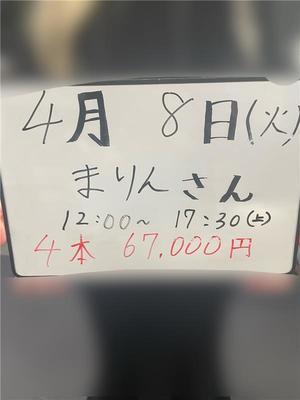 4月 8日(火)
まりんさん
12:00～ 17:30(上)
4本 67,000円